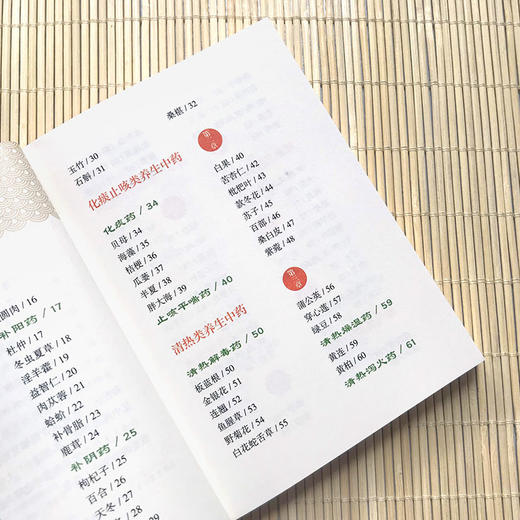 圆肉 / 16
补阳药 / 17
杜仲 / 17
冬虫夏草 / 18
淫羊藿 / 19
益智仁 / 20
肉苁蓉 / 21
蛤蚧 / 22
补骨脂 / 23
鹿茸 / 24
补阴药 / 25
枸杞子 / 25
百合 / 26
天冬 / 27
/ 28
玉竹 / 30
石斛 / 31
桑椹 / 32
第二章
化痰止咳类养生中药
化痰药 / 34
贝母 / 34
海藻 / 35
桔梗 / 36
瓜蒌 / 37
半夏 / 38
胖大海 / 39
止咳平喘药 / 40
白果 / 40
苦杏仁 / 42
枇杷叶 / 43
款冬花 / 44
苏子 / 45
百部 / 46
桑白皮 / 47
紫菀 / 48
第三章
清热类养生中药
清热解毒药 / 50
板蓝根 / 50
金银花 / 51
连翘 / 52
鱼腥草 / 53
野菊花 / 54
白花蛇舌草 / 55
蒲公英 / 56
穿心莲 / 57
绿豆 / 58
清热燥湿药 / 59
黄连 / 59
黄柏 / 60
清热泻火药 / 61